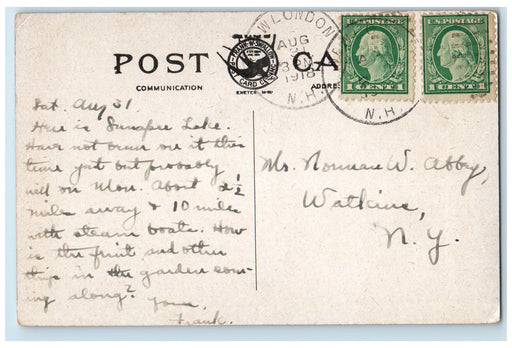 POST CA
COMMUNICATION
ADDRE
FRANK W. SWALLOW
POST CARD CO. INC.
EXETER N.H.
NEW LONDON
AUG
3 PM
1918
N.H.
N.H.
U.S. POSTAGE
1 CENT 1
U.S. POSTAGE
1 CENT 1
Sat. Aug 31
Here is Sunapee Lake.
Have not been on it this
time yet but probably
will on Mon. About 2 1/2
miles away & 10 miles
with steam boats. How
is the fruit and other
things in the garden com-
ing along? Yours,
Frank.
Mr. Norman W. Abby,
Watkins,
N. Y.